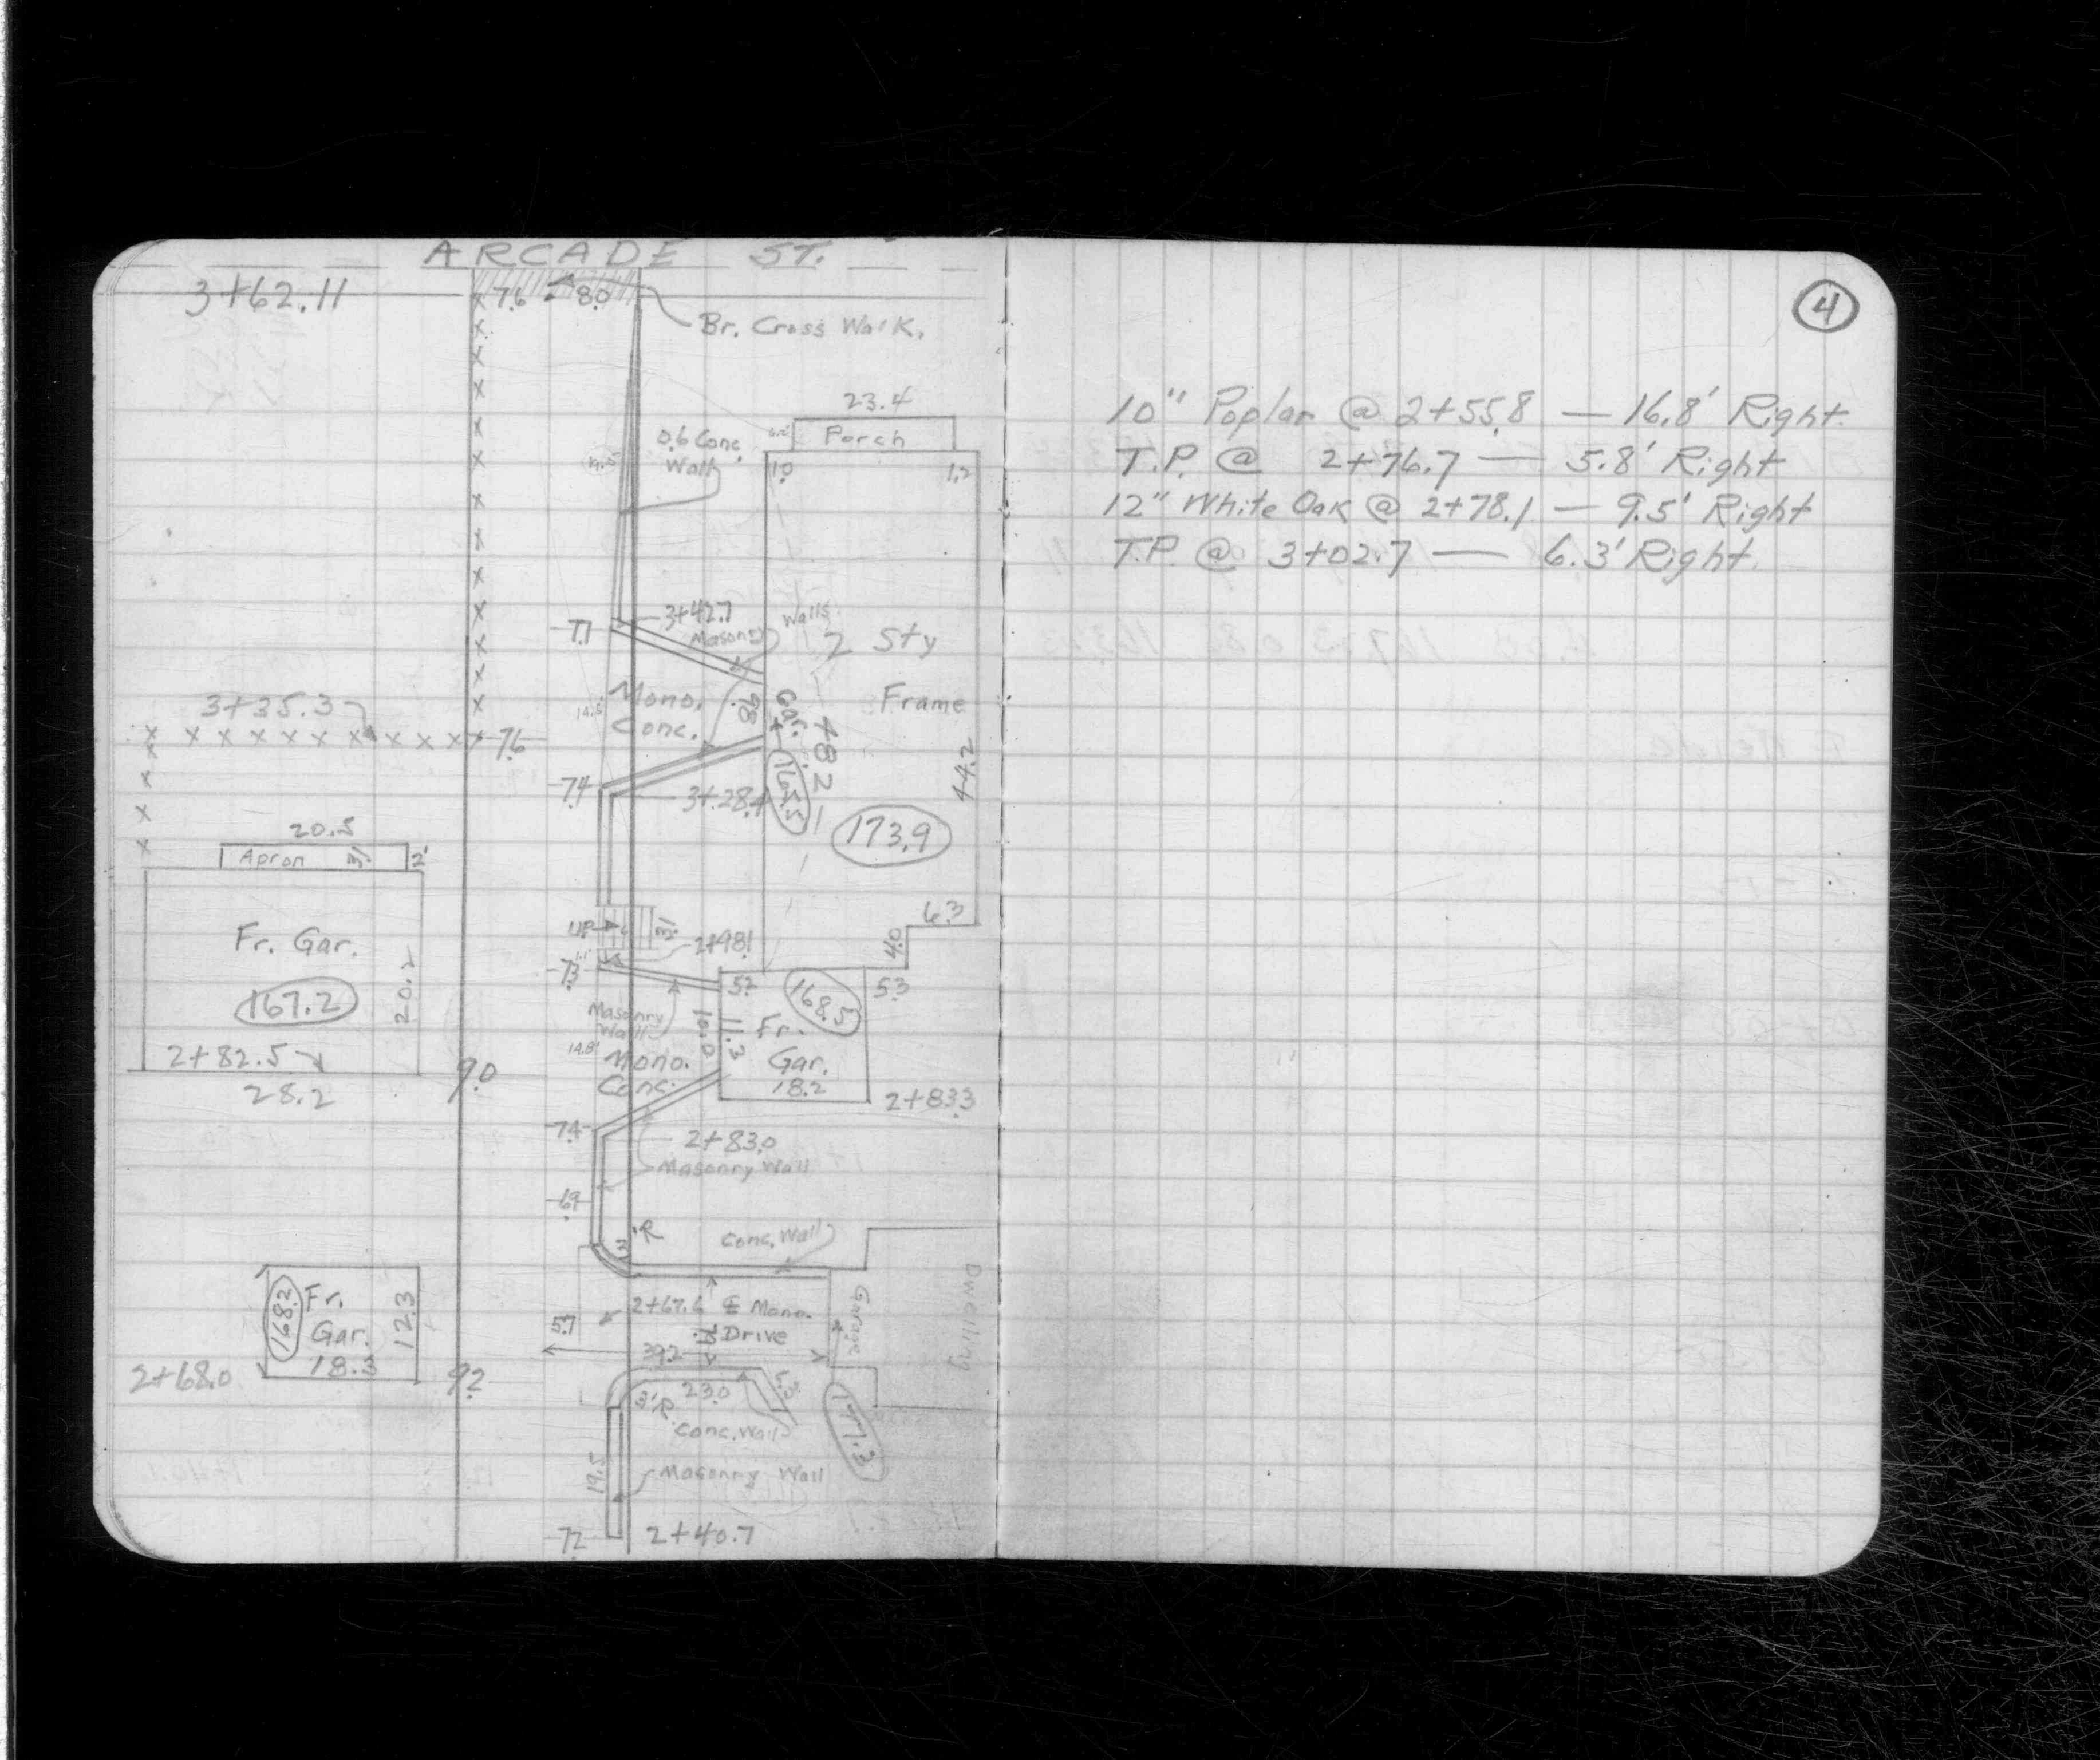 ARCADE ST.
3+62.11
7.6
8.0
Br. Cross Walk.
23.4
Porch
0.6 Conc.
Wall
1.0
1.2
3+42.7
7.1
Masonry Walls
2 Sty
Frame
Mono.
Conc.
9.8
Gar.
48.2
44.2
3+35.3
7.6
7.4
3+28.4
165.5
173.9
20.5
Apron
2'
Fr. Gar.
167.2
20.2
2+82.5
28.2
9.0
UP
2+98.1
7.3
6.3
4.0
5.2
168.5
5.3
Masonry
Wall
10.0
11.3
Fr.
Gar.
18.2
14.8'
Mono.
Conc.
2+83.3
7.4
2+83.0
Masonry Wall
6.9
3'R
Conc. Wall
168.2
Fr.
Gar.
18.3
12.3
2+68.0
9.2
5.7
2+67.6 ℄ Mono.
Drive
39.2
Garage
Dwelling
23.0
5.3
3'R.
Conc. Wall
167.3
19.5
Masonry Wall
7.2
2+40.7
4
10" Poplar @ 2+55.8 — 16.8' Right.
T.P. @ 2+76.7 — 5.8' Right
12" White Oak @ 2+78.1 — 9.5' Right
T.P. @ 3+02.7 — 6.3' Right.